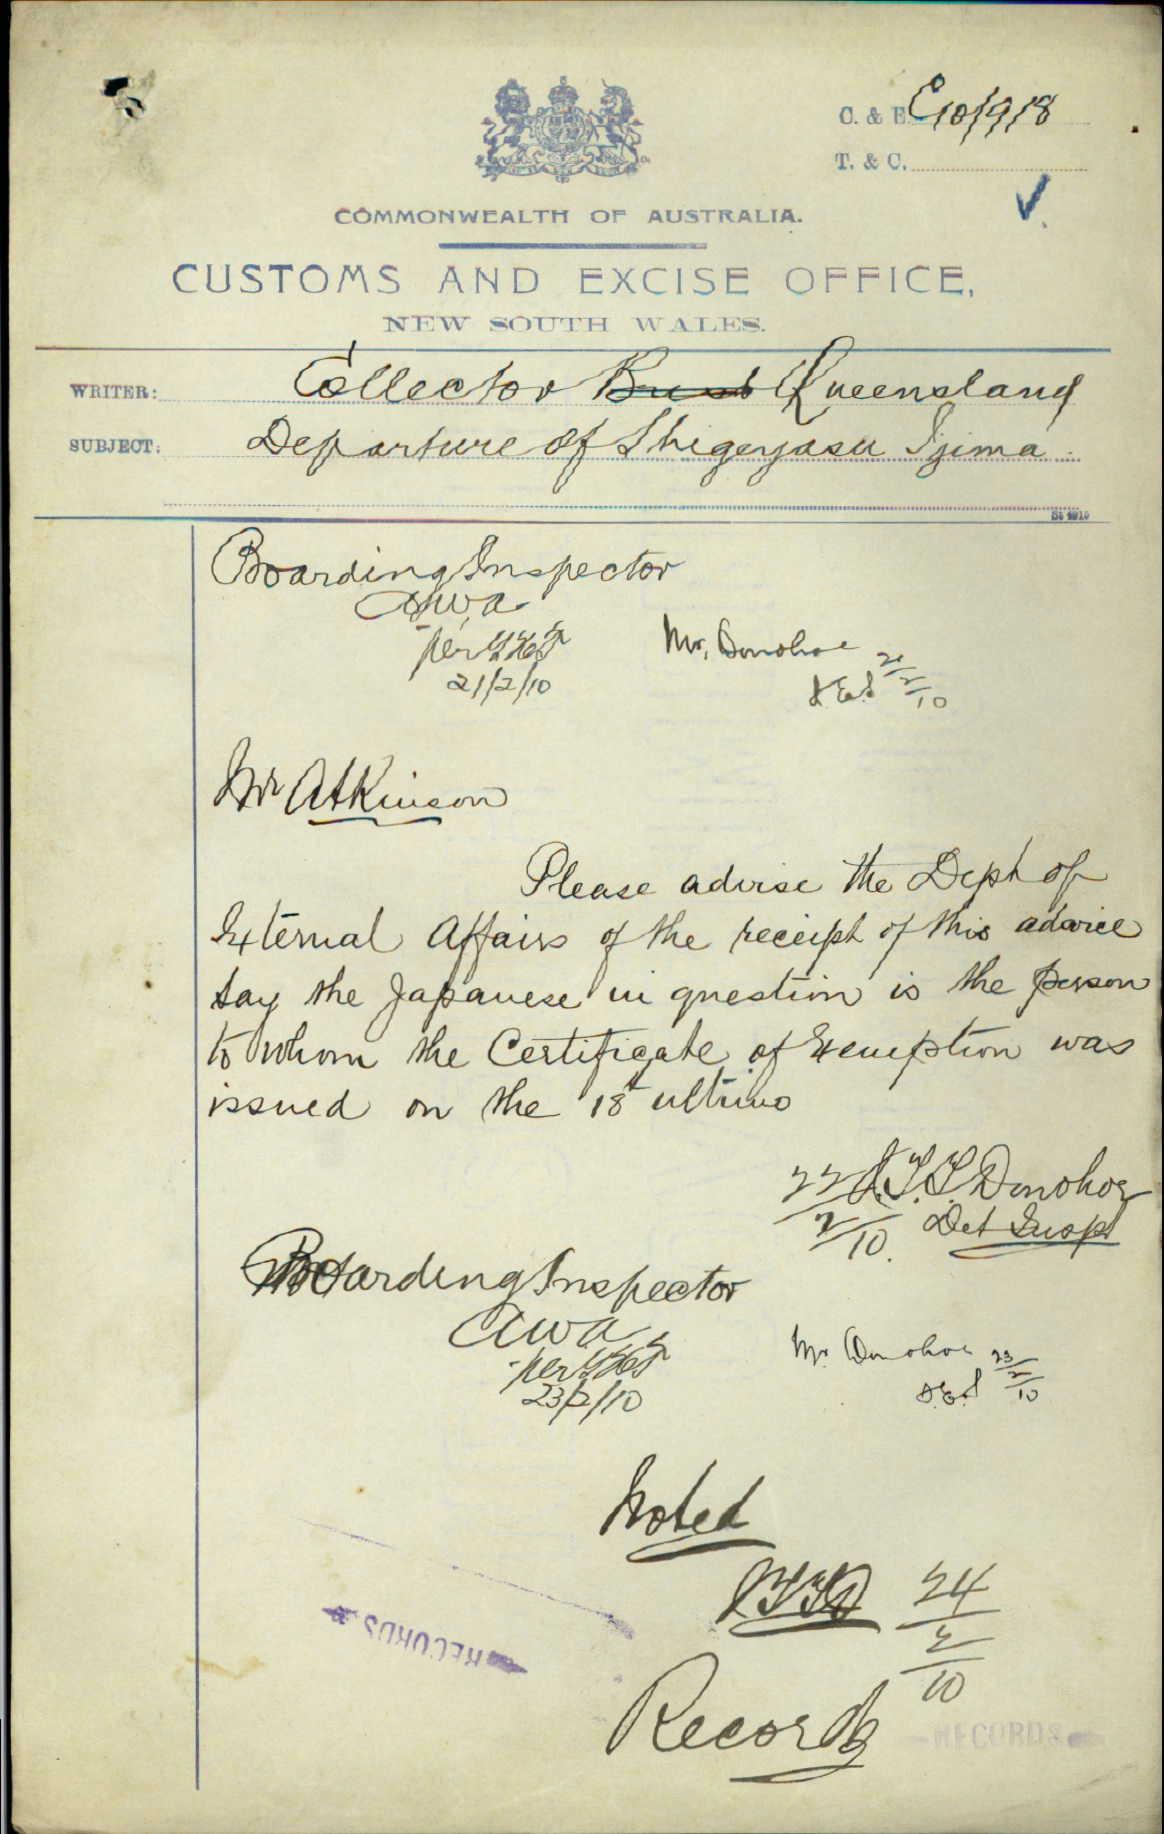 C. & E. E10/918
T. & C.
COMMONWEALTH OF AUSTRALIA.
CUSTOMS AND EXCISE OFFICE,
NEW SOUTH WALES.
WRITER: Collector Brisb Queensland
SUBJECT: Departure of Shigeyasu Ijima
St 4910
Boarding Inspector
AWA
per
21/2/10
Mr. Donohoe
21/2/10
Mr Atkinson
Please advise the Dept of
External Affairs of the receipt of this advice
Say the Japanese in question is the person
to whom the Certificate of Exemption was
issued on the 18th ultimo
22/2/10 J.T.T. Donohoe
Det Insp
Boarding Inspector
AWA
per
23/2/10
Mr Donohoe
23/2/10
Noted
JTTD 24/2/10
RECORDS
Records
RECORDS